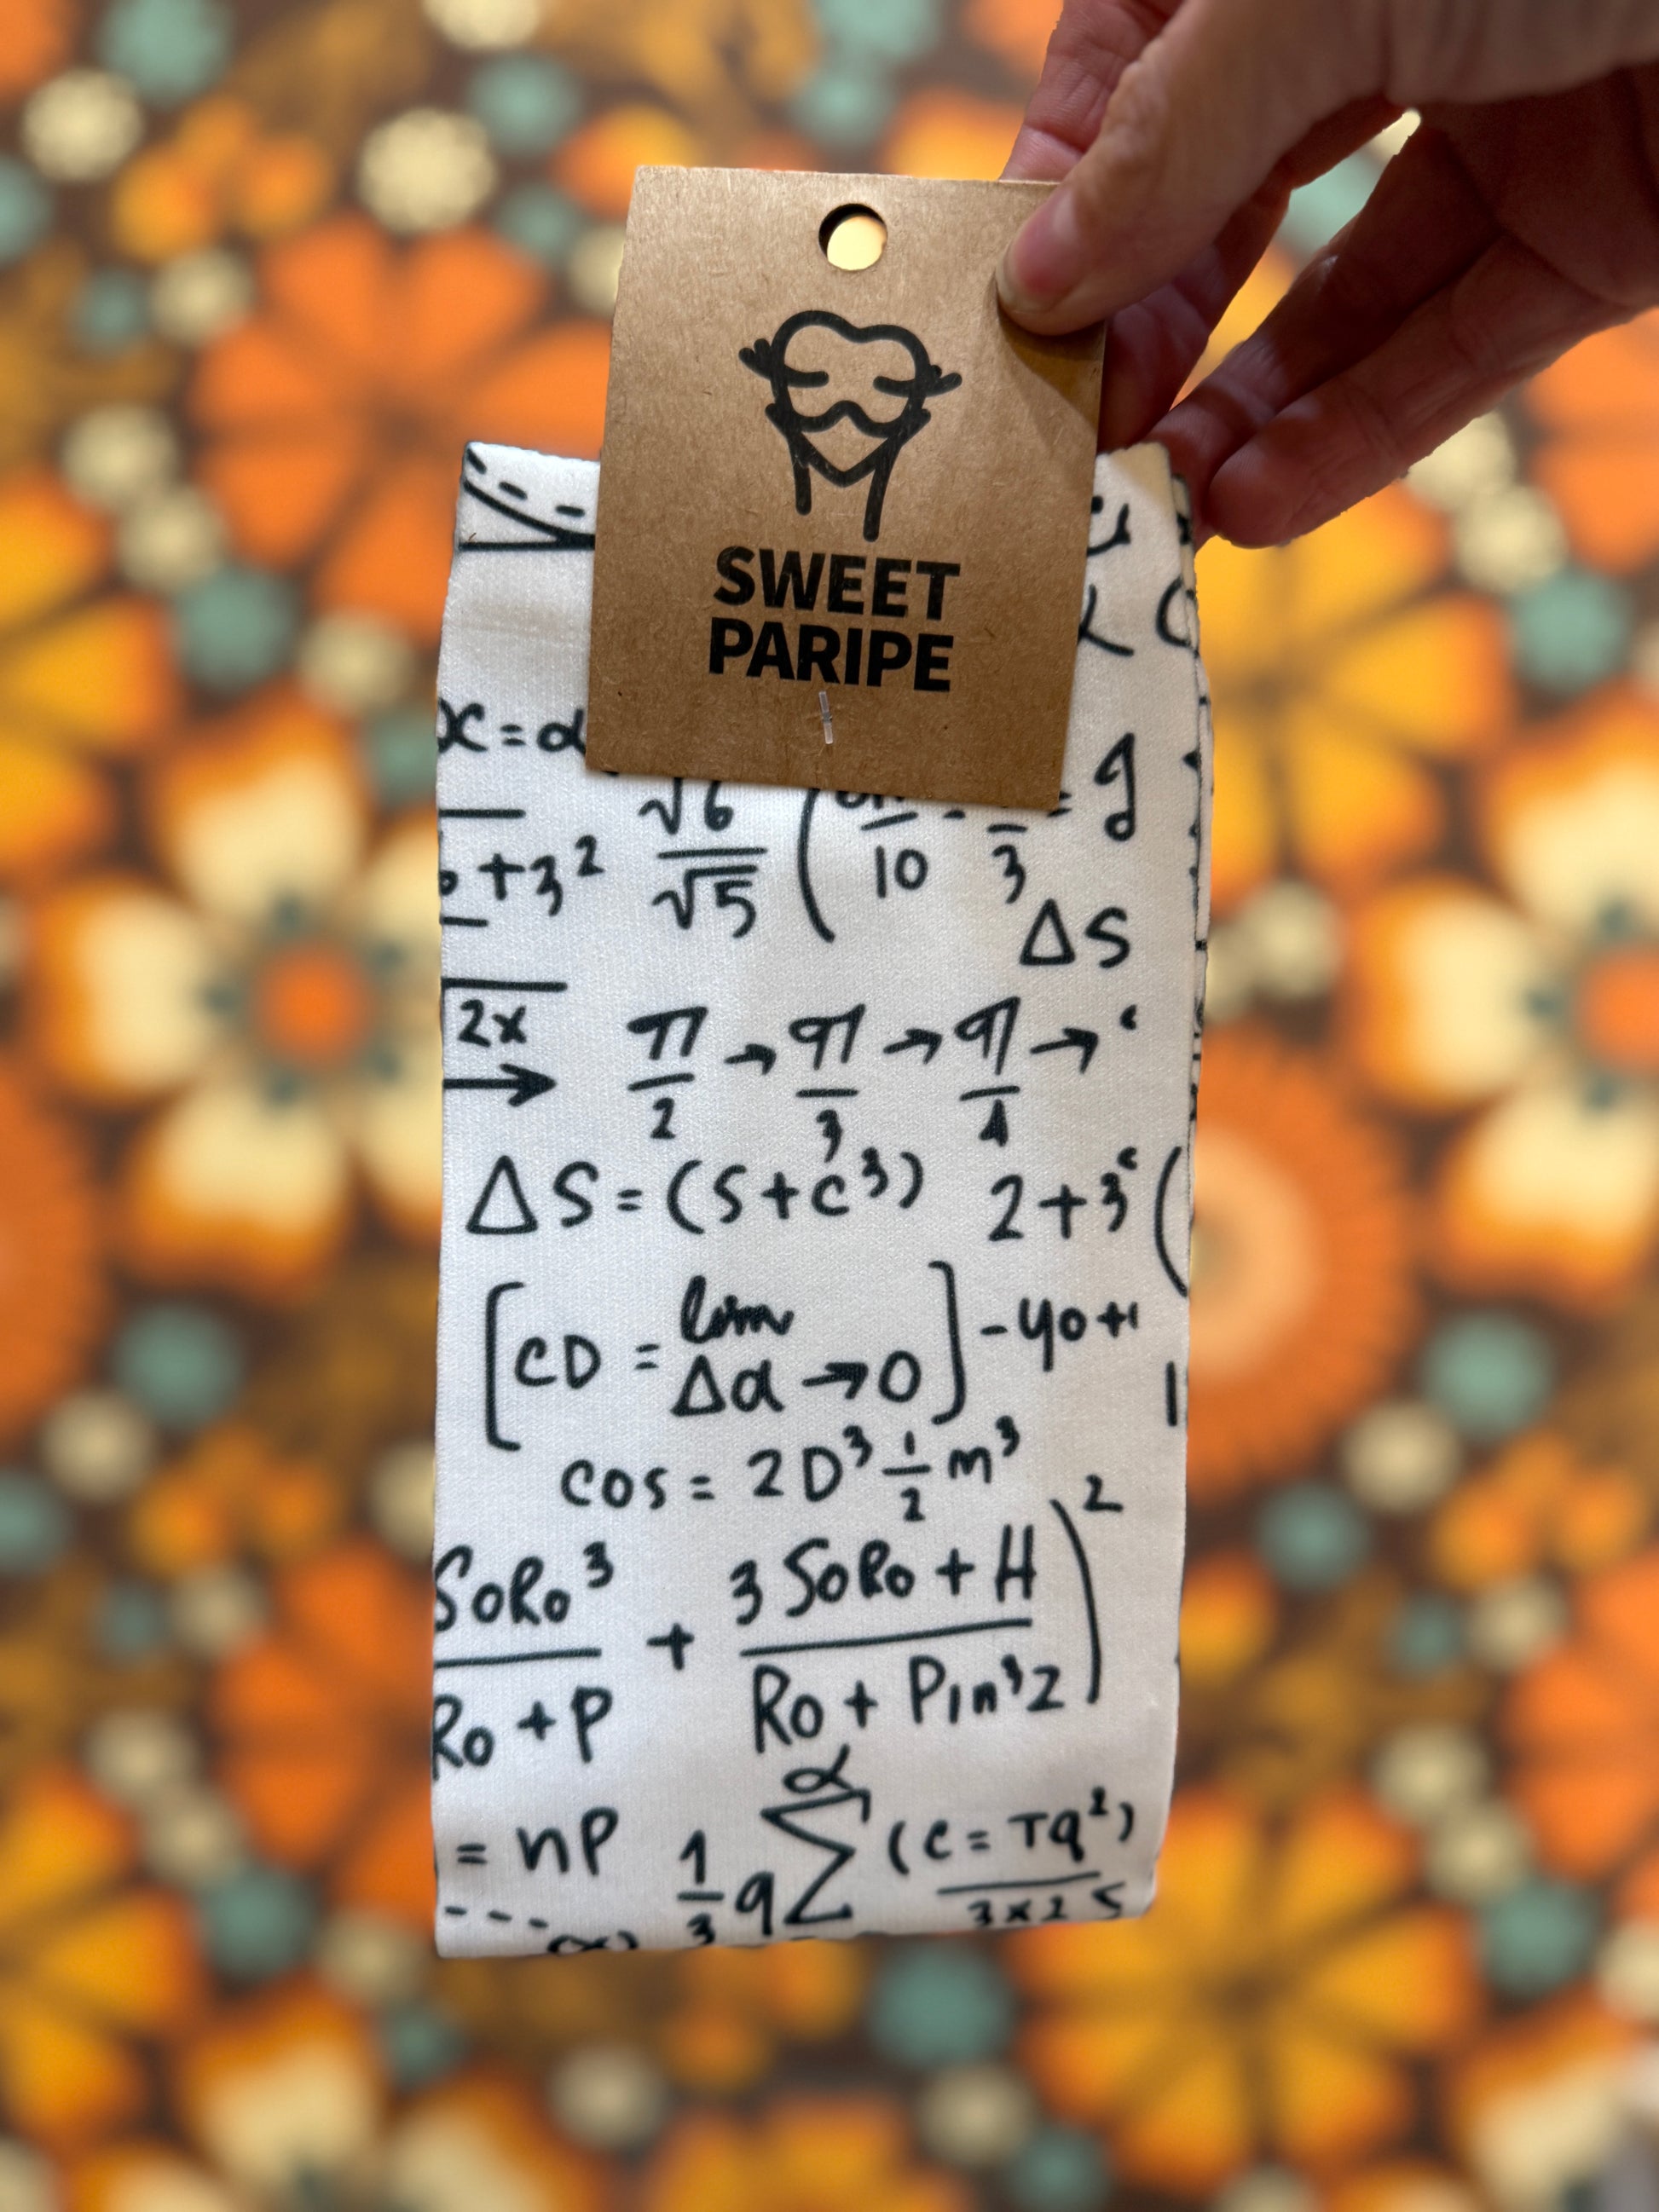 SWEET
PARIPE
x=α
√6
√5
10
3
= g
+3²
ΔS
2x
→
π/2 → π/3 → π/4 →
ΔS=(S+c³) 2+3 (
[CD = lim Δα→0] -40+
cos = 2D³ 1/2 m³
SoRo³/Ro+P + 3SoRo+H/Ro+Pin³z )²
= nP 1/3 q α∑ (c=Tq²)/3x2 S